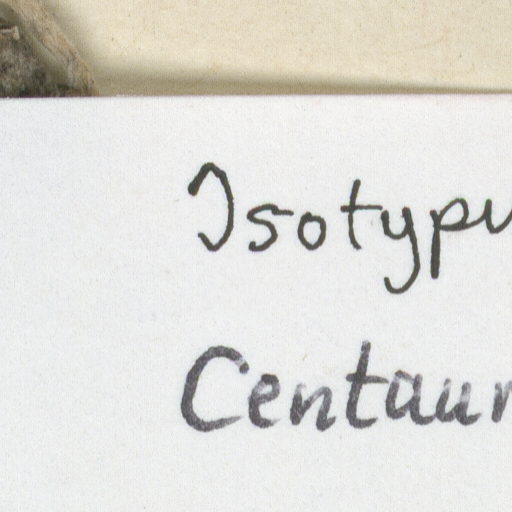 Isotypu
Centaur